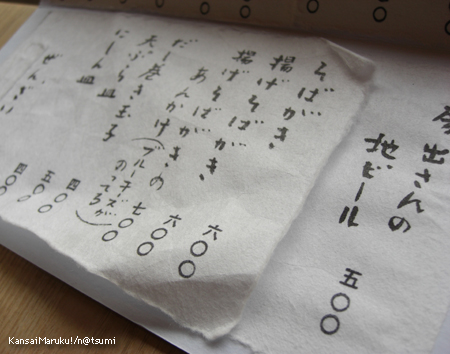 出さんの
地ビール 五〇〇
そばがき 六〇〇
揚げそばがき
揚げそばがきの
あんかけ 七〇〇
(ブルーチーズ
だし巻き玉子
天ぷら皿
にしん皿
ぜんざい
四〇〇
五〇〇
四〇〇
KansaiMaruku!/n@tsumi